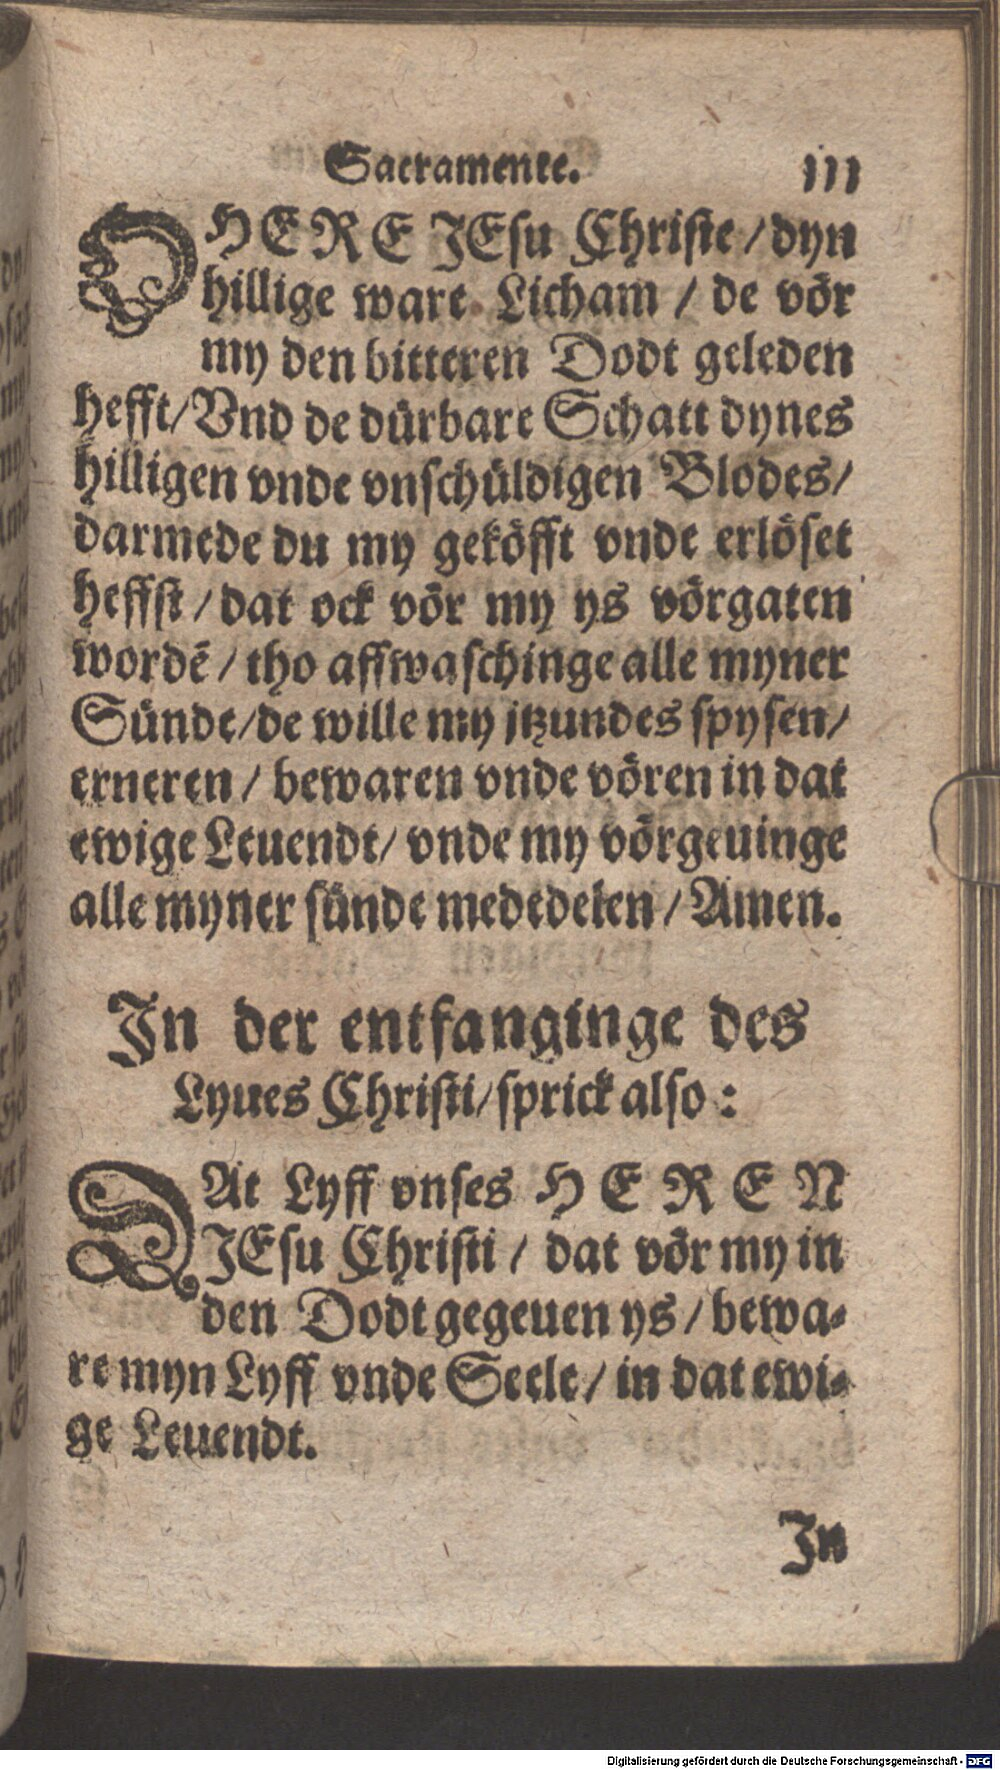 Sacramente. 111
O HERE JEsu Christe / dyn
hillige ware Licham / de vör
my den bitteren Dodt geleden
hefft / Vnd de dürbare Schatt dynes
hilligen vnde vnschüldigen Blodes /
darmede du my geköfft vnde erlöset
heffst / dat ock vör my ys vörgaten
wordē / tho affwaschinge alle myner
Sünde / de wille my jtzundes spysen /
erneren / bewaren vnde vören in dat
ewige Leuendt / vnde my vörgeuinge
alle myner sünde mededelen / Amen.
In der entfanginge des
Lyues Christi / sprick also :
DAt Lyff vnses HEREN
JEsu Christi / dat vör my in
den Dodt gegeuen ys / bewa-
re myn Lyff vnde Seele / in dat ewi-
ge Leuendt.
In
Digitalisierung gefördert durch die Deutsche Forschungsgemeinschaft - DFG